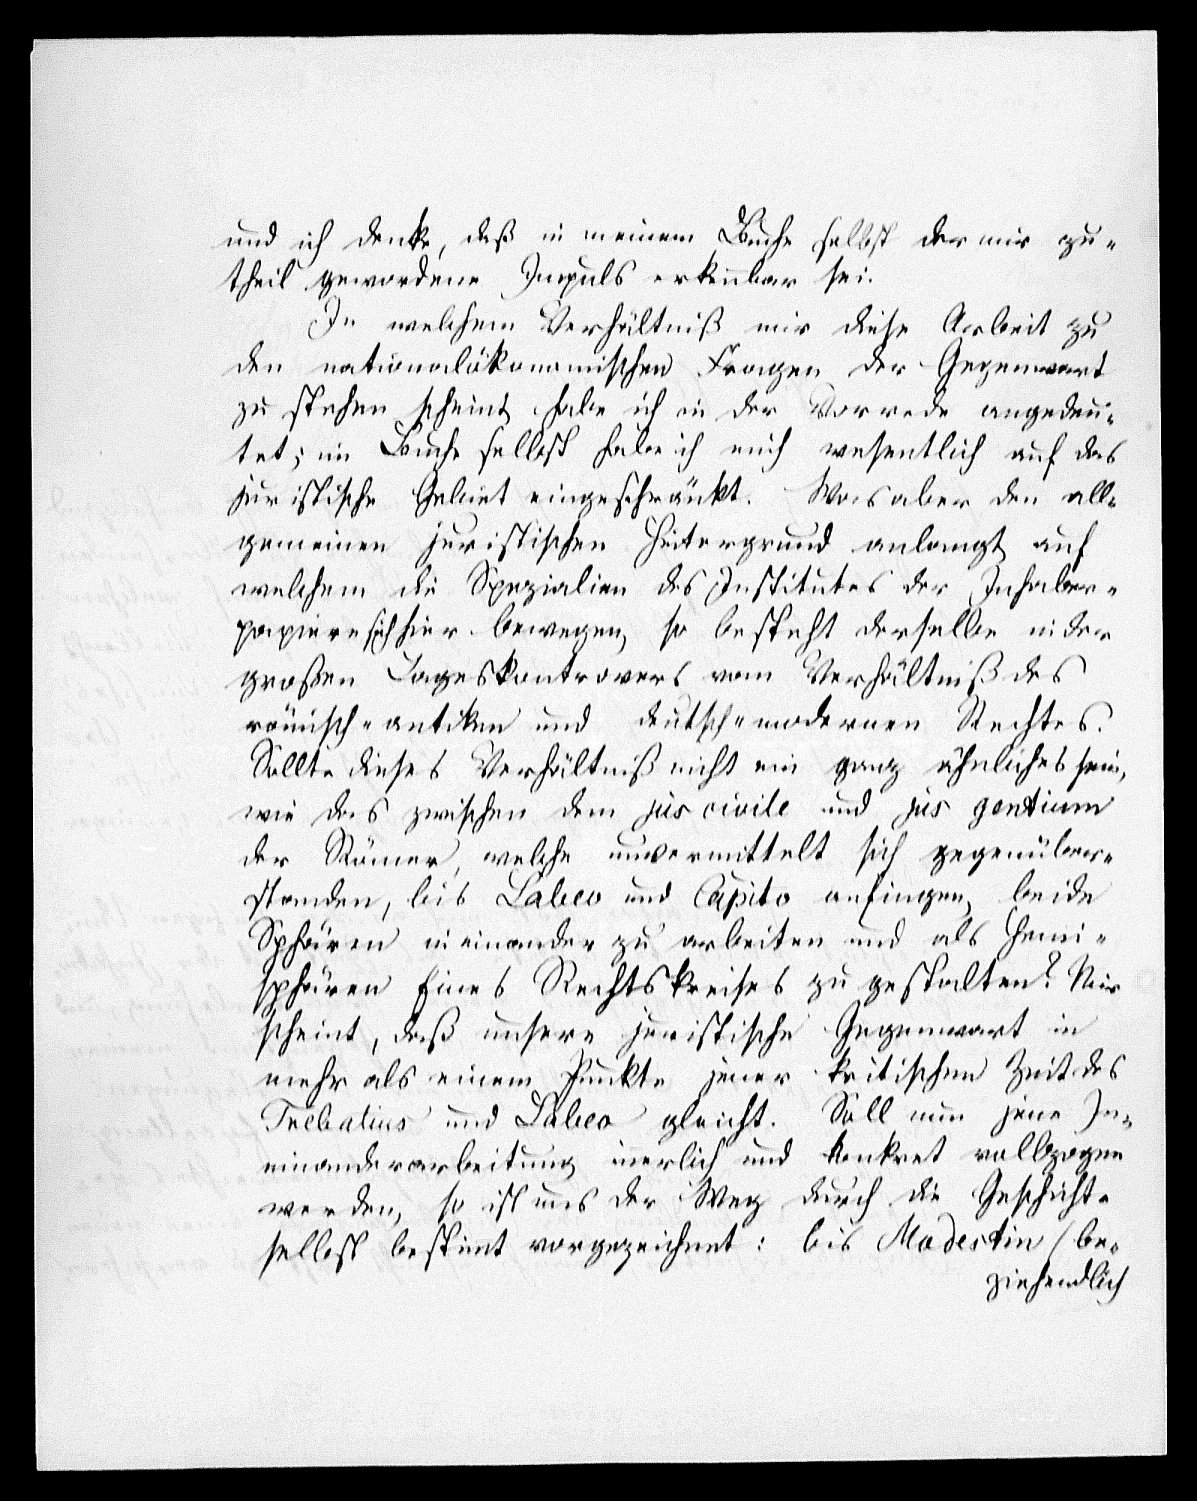 und ich denke, daß in meinem Buche selbst der mir zu-
theil gewordene Impuls erkennbar sei.
In welchem Verhältniß mir diese Arbeit zu
den nationalökonomischen Fragen der Gegenwart
zu stehen scheint, habe ich in der Vorrede angedeu-
tet; im Buche selbst habe ich mich wesentlich auf das
juristische Gebiet eingeschränkt. Was aber den all-
gemeinen juristischen Hintergrund anlangt, auf
welchem die Spezialien des Institutes der Inhaber-
papiere sich hier bewegen, so besteht derselbe in der
großen Tageskontrovers vom Verhältniß des
römisch-antiken und deutsch-modernen Rechtes.
Sollte dieses Verhältniß nicht ein ganz ähnliches sein,
wie das zwischen dem jus civile und jus gentium
der Römer, welche unvermittelt sich gegenüber-
standen, bis Labeo und Capito anfingen, beide
Sphären ineinander zu arbeiten und als Hemi-
sphären Eines Rechtskreises zu gestalten? Mir
scheint, daß unsere juristische Gegenwart in
mehr als einem Punkte jener kritischen Zeit des
Trebatius und Labeo gleicht. Soll nun jene In-
einanderarbeitung innerlich und konkret vollzogen
werden, so ist uns der Weg durch die Geschichte
selbst bestimt vorgezeichnet: bis Modestin (be-
ziehendlich